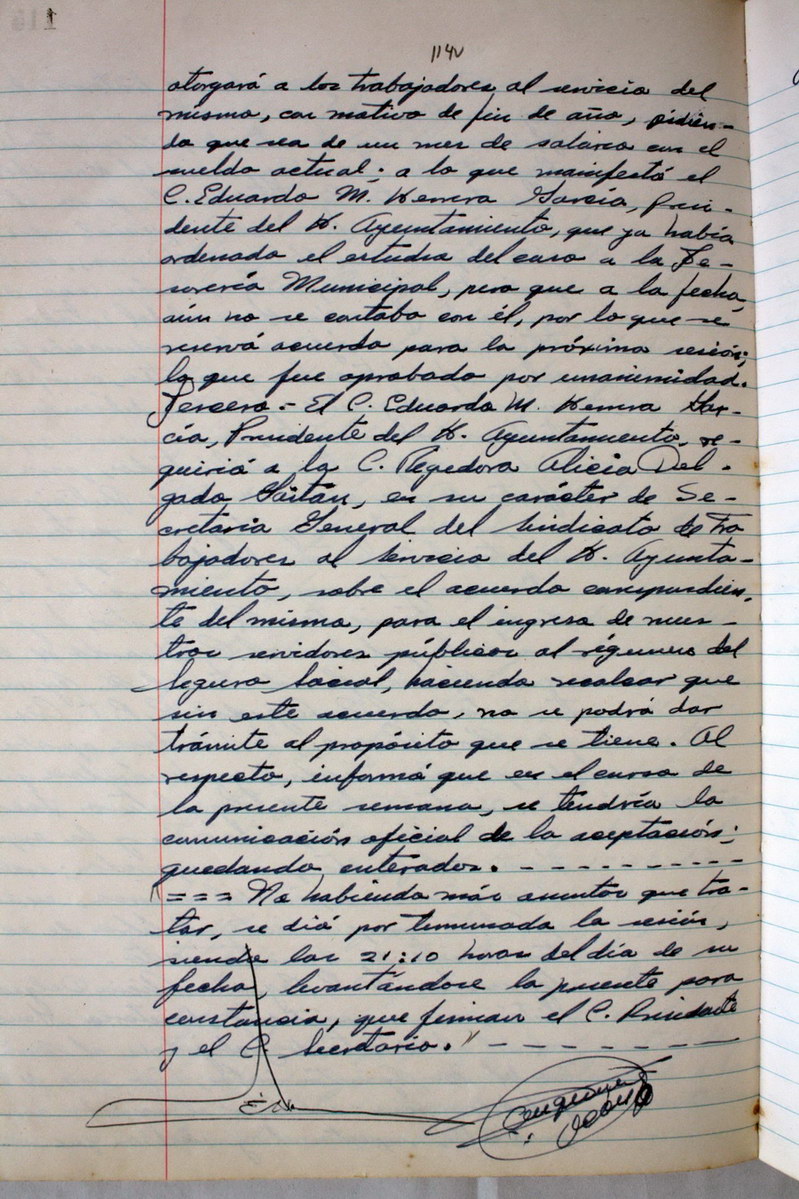 114v
otorgará a los trabajadores al servicio del
mismo, con motivo de fin de año, pidién-
do que sea de un mes de salario con el
sueldo actual; a lo que manifestó el
C. Eduardo M. Herrera García, Presi-
dente del H. Ayuntamiento, que ya había
ordenado el estudio del caso a la Te-
sorería Municipal, pero que a la fecha,
aún no se contaba con él, por lo que se
reservó acuerdo para la próxima sesión;
lo que fue aprobado por unanimidad.
Tercero.- El C. Eduardo M. Herrera Gar-
cía, Presidente del H. Ayuntamiento, re-
quirió a la C. Regidora Alicia Del-
gado Gaitán, en su carácter de Se-
cretaria General del Sindicato de Tra
bajadores al Servicio del H. Ayunta-
miento, sobre el acuerdo correspondien-
te del mismo, para el ingreso de nues-
tros servidores públicos al régimen del
Seguro Social, haciendo recalcar que
sin este acuerdo, no se podrá dar
trámite al propósito que se tiene. Al
respecto, informó que en el curso de
la presente semana, se tendría la
comunicación oficial de la aceptación;
quedando enterados. - - - - - - - - - -
= = = No habiendo más asuntos que tra-
tar, se dió por terminada la sesión,
siendo las 21:10 horas del día de su
fecha, levantándose la presente para
constancia, que firman el C. Presidente
y el C. Secretario. - - - - - - -